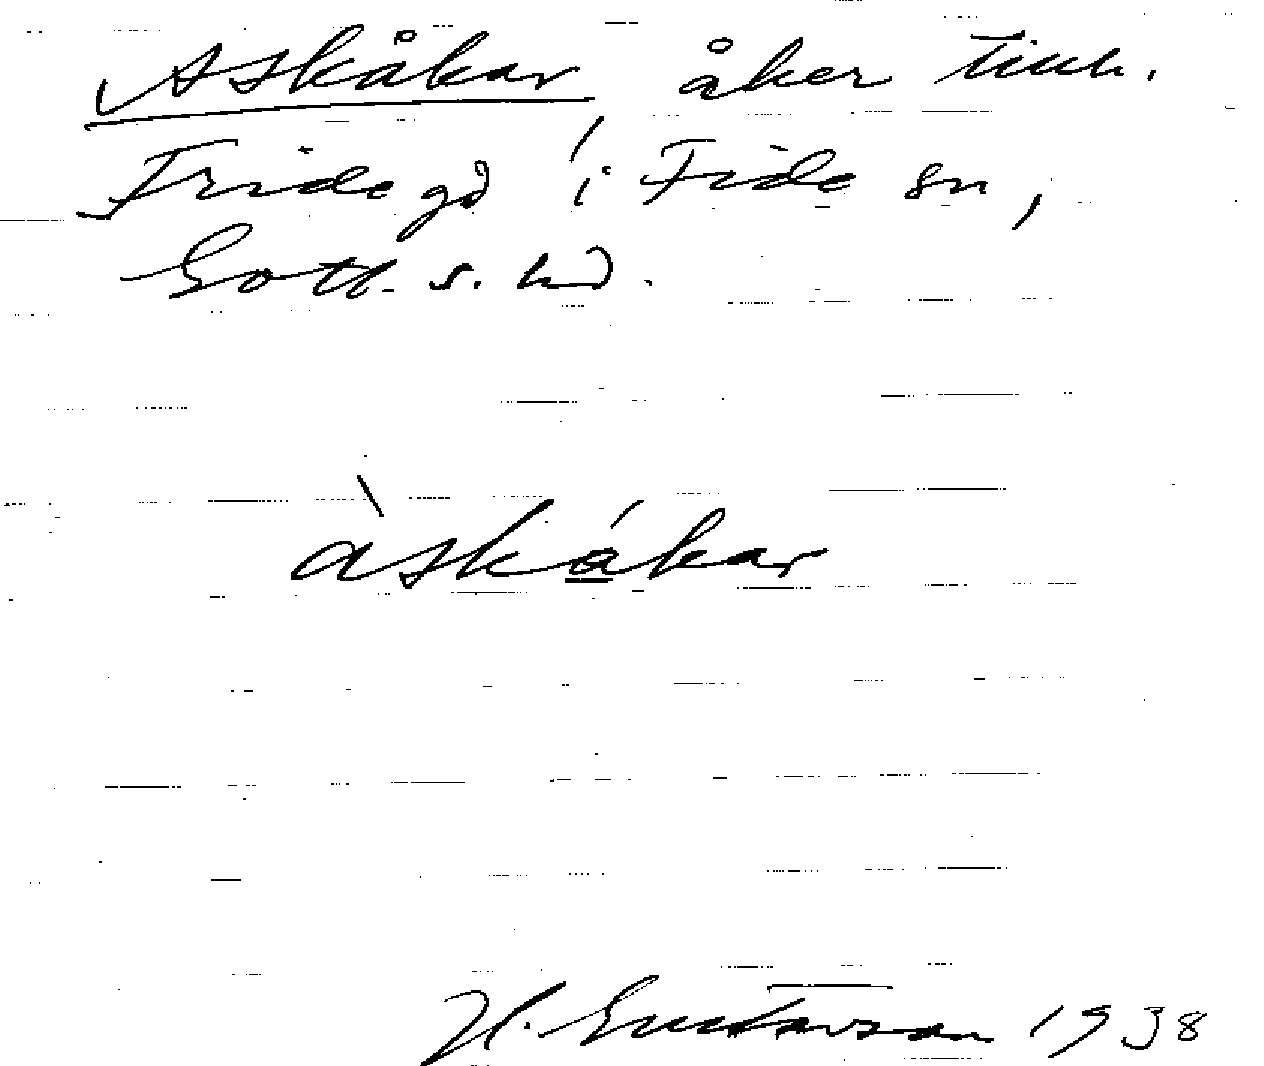 Askåkar, åker tillh.
Fridegd i Fide sn,
Gotl. s. hd.
àskákar
H. Gustavson 1938